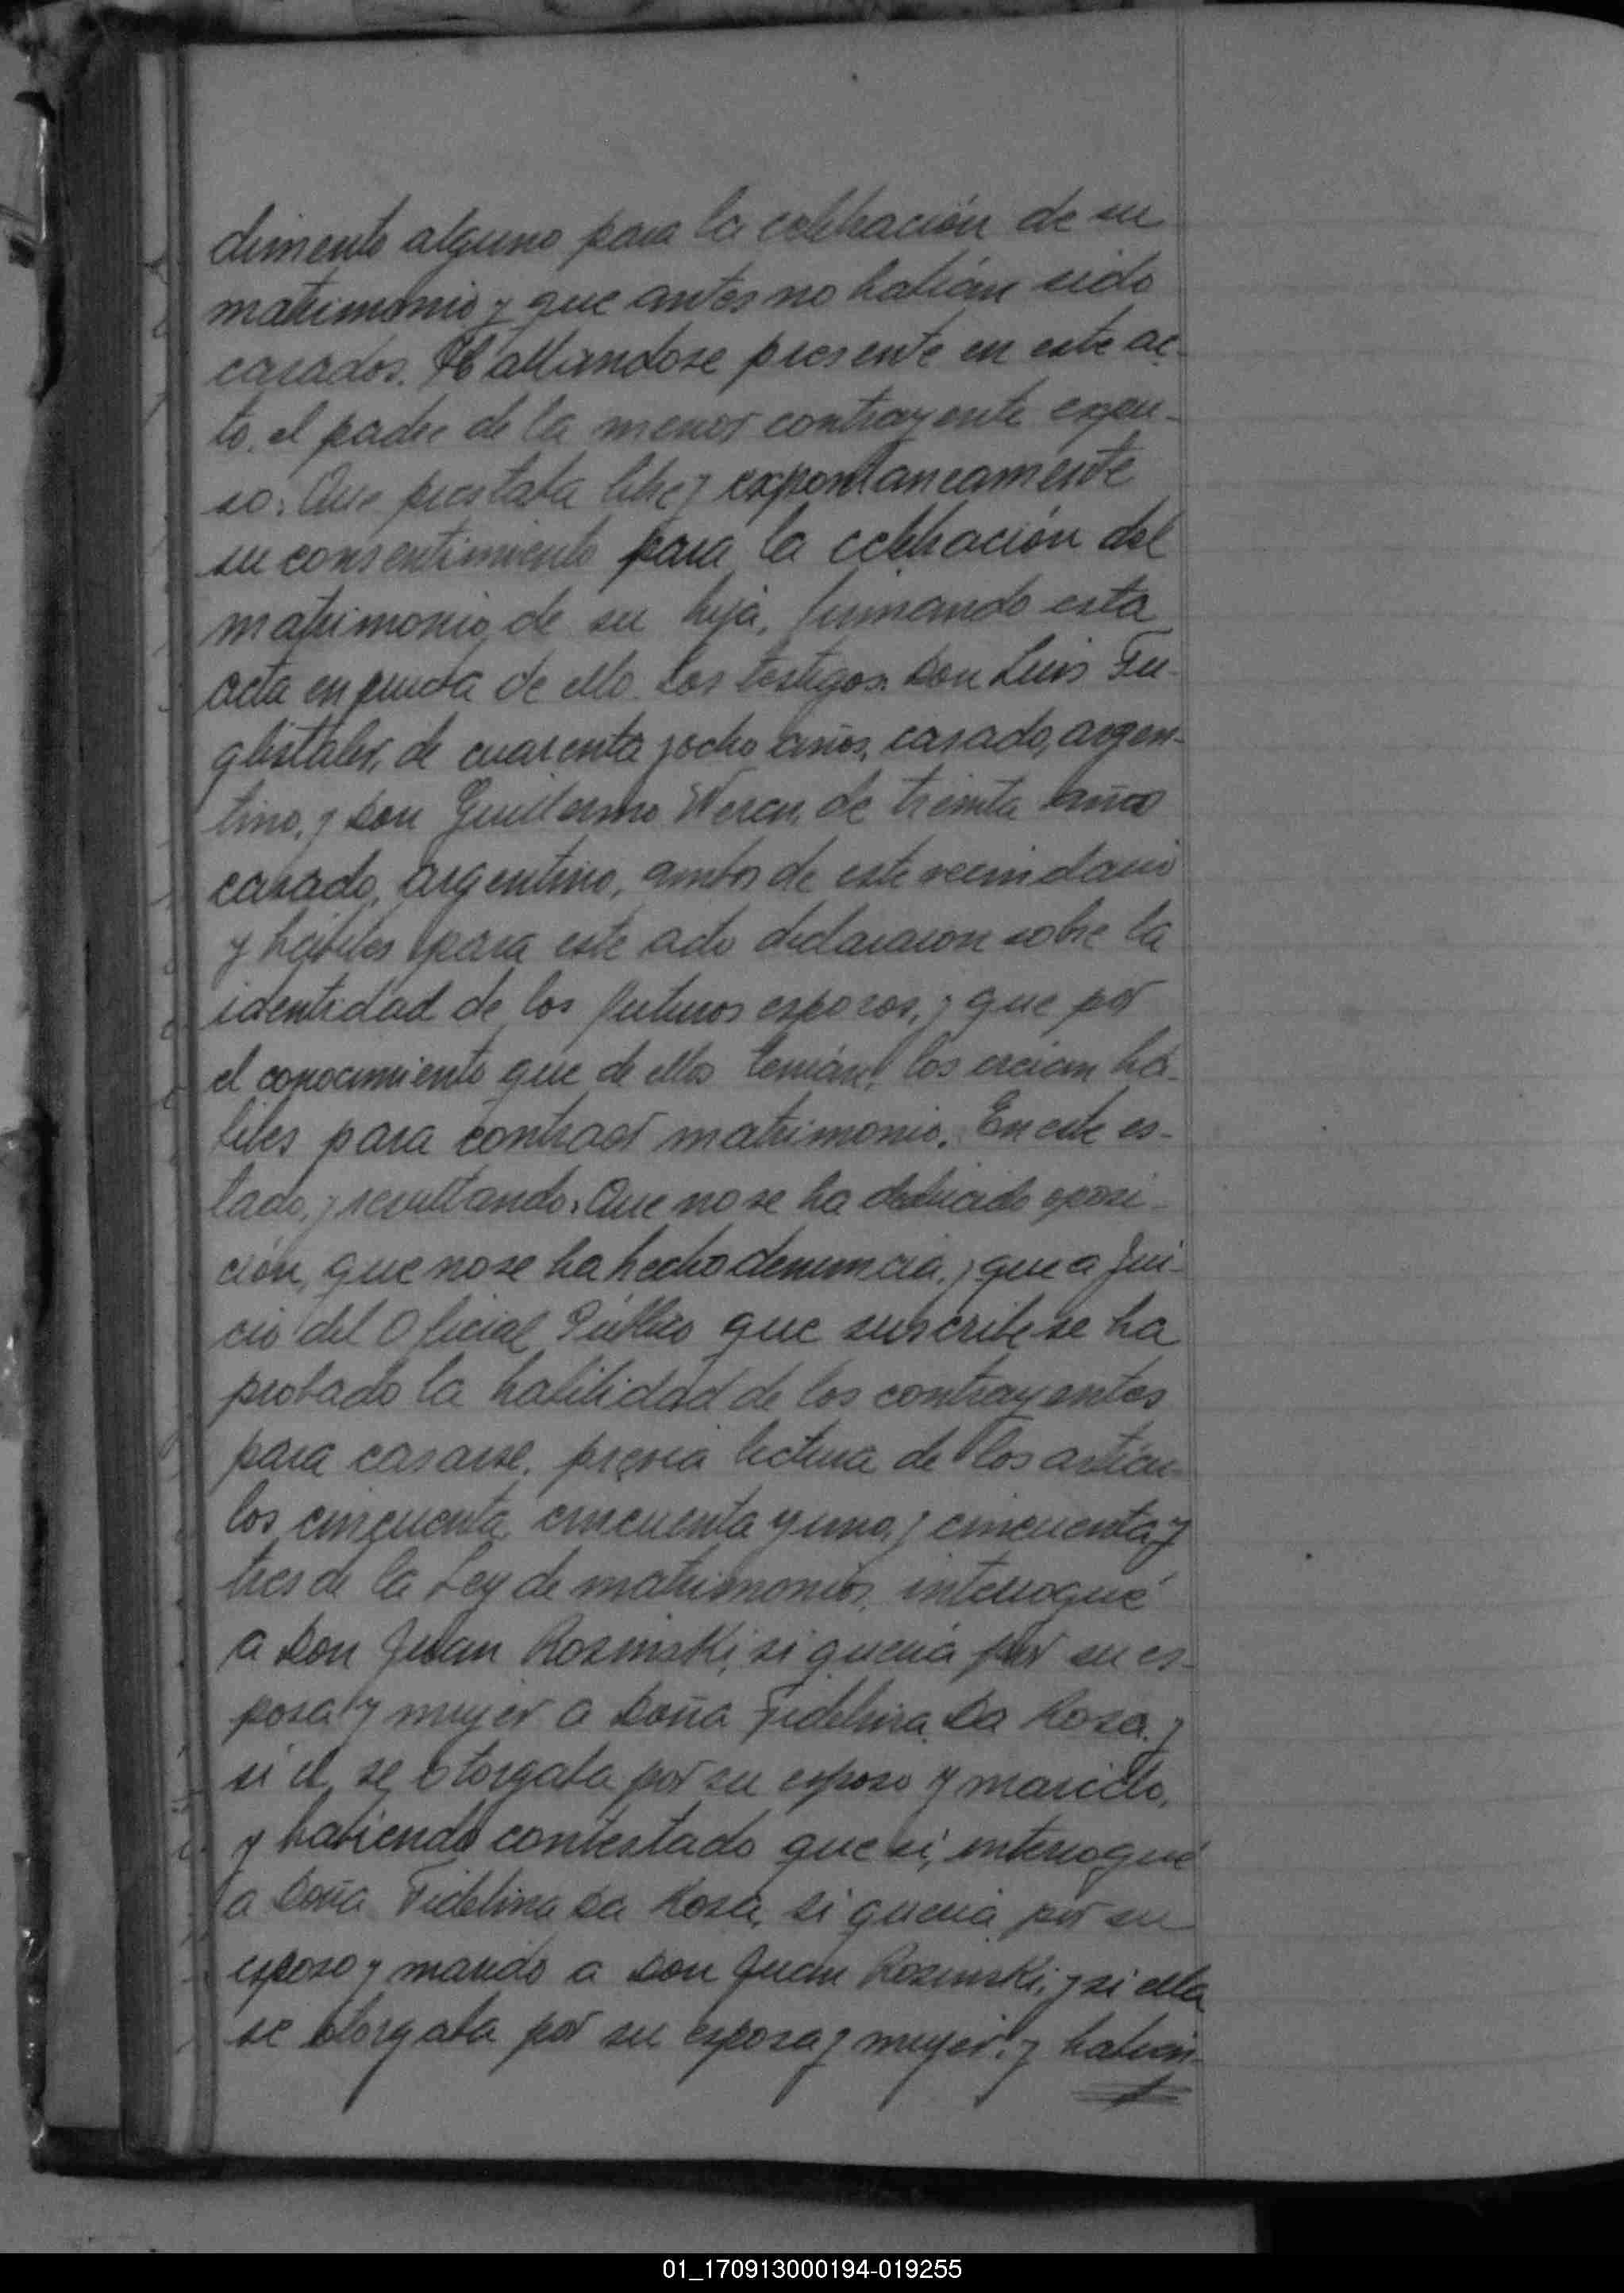 dimento alguno para la celebración de su
matrimonio y que antes no habían sido
casados. Hallandose presente en este ac-
to, el padre de la menor contrayente expu-
so: Que prestaba libre y expontaneamente
su consentimiento para la celebración del
matrimonio de su hija, firmando esta
acta en prueba de ello. Los testigos: Don Luis
de cuarenta y ocho años, casado, argen-
tino, y Don Guillermo Weren, de treinta años
casado, argentino, ambos de este vecindario
y hábiles para este acto declararon sobre la
identidad de los futuros esposos, y que por
el conocimiento que de ellos tenían, los creían há-
biles para contraer matrimonio. En este es-
tado, y resultando: Que no se ha deducido oposi-
ción, que no se ha hecho denuncia, y que a jui-
cio del Oficial Público que suscribe se ha
probado la habilidad de los contrayentes
para casarse, previa lectura de los artícu-
los cincuenta, cincuenta y uno, y cincuenta y
tres de la Ley de matrimonios, interrogué
a Don Juan Rosinski, si quería por su es-
posa y mujer a Doña Fidelina Da Rosa, y
si el se otorgaba por su esposo y marido,
y habiendo contestado que sí, interrogué
a Doña Fidelina Da Rosa, si quería por su
esposo y marido a Don Juan Rosinski, y si ella
se otorgaba por su esposa y mujer, y habien-
01_170913000194-019255